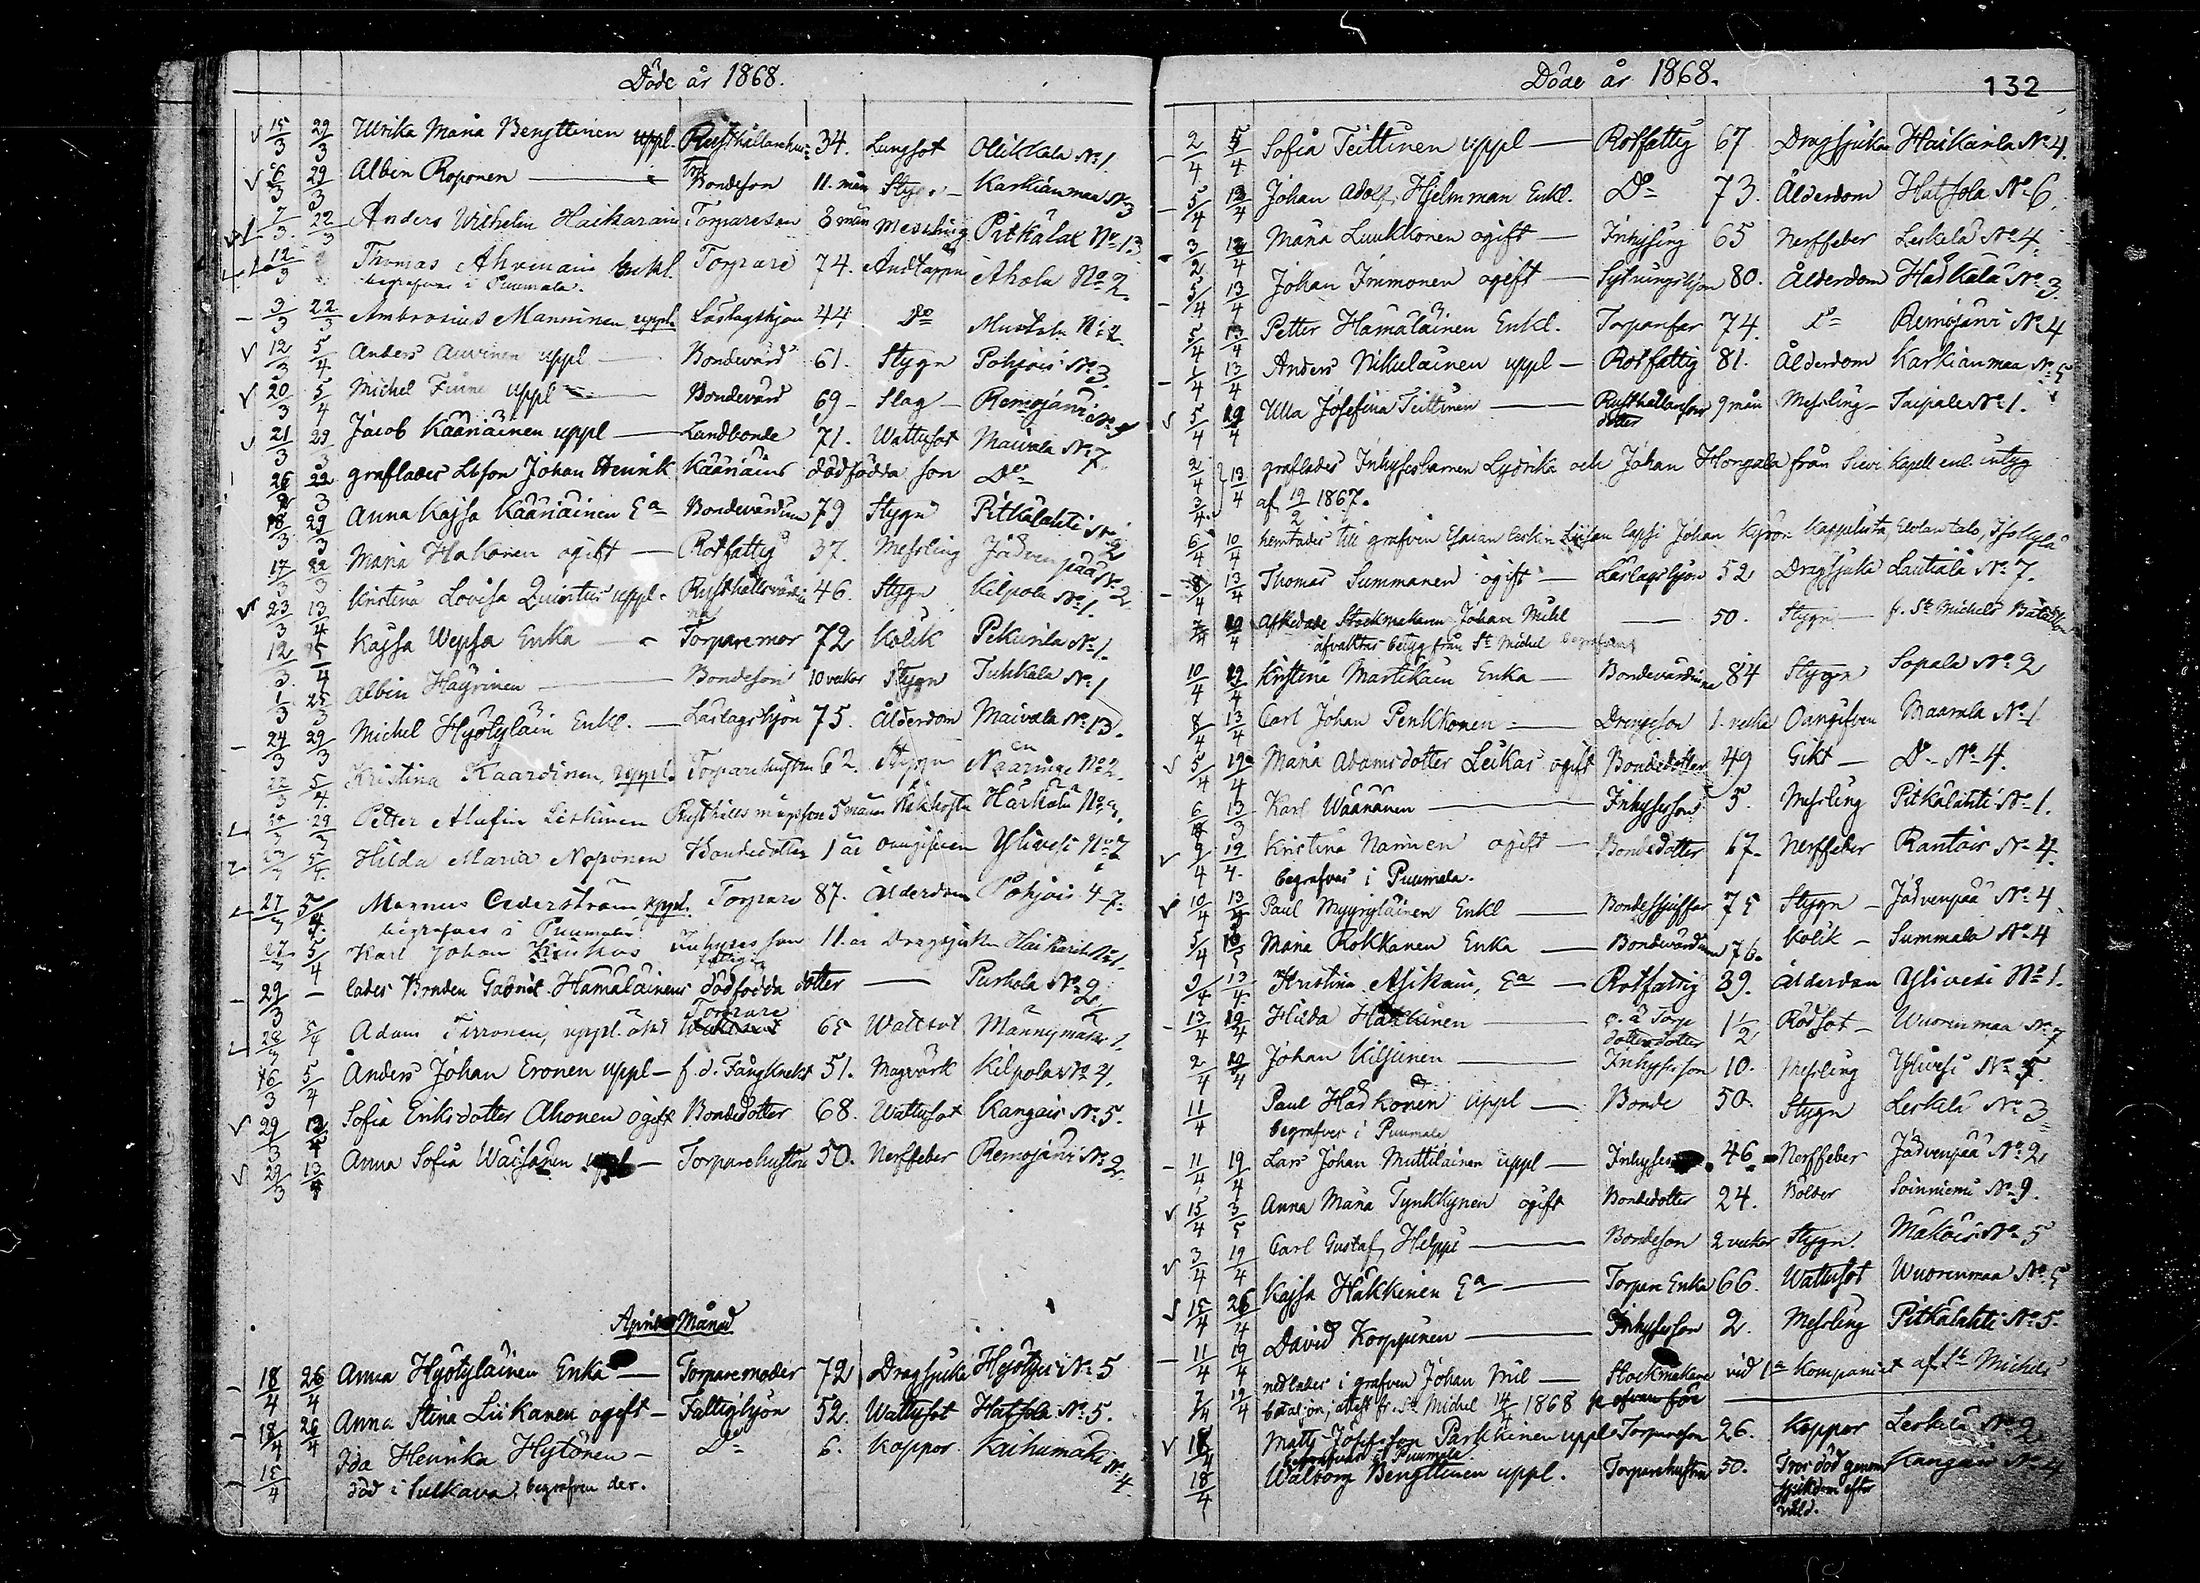 Döde år 1868.
15/3 29/3 Ulrika Maria Bengttinen uppl. Rusthållarehus: 34. Lungsot Olikkala No 1.
6/3 29/3 Albin Roponen — Bondeson 11. mån Stygn — Karkianmaa No 3
7/3 22/3 Anders Wilhelm Haikarain Torpareson 8 mån Messling Pitkälax No 13
12/3 Thomas Ahvenain Enkl. Torpare 74. Andtäppa Ahola No 2.
begrafves i Puumala.
3/3 22/3 Ambrosius Manninen uppl. Lästagshjon 44 Do Mustola No 2.
12/3 5/4 Anders Auvinen uppl — Bondevärd 61. Stygn Pohjois No 3.
20/3 5/4 Michel Finne uppl — Bondevärd 69 — Slag — Remojärvi No 5
21/3 29/3 Jacob Kääriäinen uppl — Landbonde 71. Wattusot Maivala No 7.
26/3 22/3 graflades Lbson Johan Henrik Kääriäins dödfödda son Do
18/3 29/3 Anna Kajsa Kääriäinen Ea Bondevärdinna 79 Stygn Pitkälahti No 2
17/3 22/3 Maria Hakonen ogift — Rotfattig 37. Messling Jädvenpää No 2
23/3 13/4 Kristina Lovisa Quintus uppl. Rusthållsvärdinna 46. Stygn Kilpola No 1.
12/3 5/4 Kajsa Wepsä Enka — Torparemor 72 Kolik Pekurila No 1.
1/3 25/3 Albin Häyrinen — Bondeson 10 veckor Stygn Tukkala No 1
24/3 29/3 Michel Hyötyläin Enkl. — Lästagshjon 75. Ålderdom Maivala No 13.
22/3 5/4 Kristina Kaardinen, uppl. Torparehustru 62. Stygn No 2.
29/3 Petter Alufin Leskinen 5 mån Kikhosta Härkälä No
5/4 Hilda Maria Noponen Bondedotter 1 år oangifven Ylivesi No 2
27/3 5/4 Magnus Cederström uppl. Torpare 87. Ålderdom Pohjois 4-7.
begrafves i Puumala
27/3 5/4 Karl Johan Inhyses son 11. år Dragsjuka Haikarila No 1.
29/3 — lades Bonden Gabriel Hämäläinens dödfödda dotter — Purhola No 2
28/3 5/4 Adam Tirronen, uppl. Torpare 65 Wattsot Männynmäki 1.
16/3 5/4 Anders Johan Eronen uppl — f.d. Fångknekt 51. Magvärk Kilpola No 4.
29/3 13/4 Sofia Eriksdotter Ahonen ogift Bondedotter 68. Wattusot Kangais No 5.
29/3 13/4 Anna Sofia Waisänen uppl — Torparehustru 50. Nerffeber Remojärvi No 2.
April Månad
18/4 26/4 Anna Hyötyläinen Enka — Torparemoder 72 Dragsjuka Hyötyis No 5
18/4 26/4 Anna Stina Liikanen ogift — Fattighjon 52. Wattusot Hatsola No 5.
15/4 Ida Henrika Hytönen — Do 6. Koppor. Kaihumäki No 4.
död i Sulkava. begrafven der.
Döde år 1868. 132
2/4 5/4 Sofia Teittinen uppl — Rotfattig 67 Dragsjuka Haikarila No 4.
5/4 12/4 Johan Adolf Hjelmman Enkl. Do 73. Ålderdom Hatsola No 6.
3/4 12/4 Maria Luukkonen ogift — Inhysing 65 Nerffeber Leskelä No 4.
2/4 13/4 Johan Immonen ogift — Sytningshjon 80. Ålderdom Hadkälä No 3.
5/4 13/4 Petter Hämäläinen Enkl. Torparfar 74. Do Remojärvi No 4
1/4 13/4 Anders Nikulainen uppl — Rotfattig 81. Ålderdom Karkianmaa No 5
5/4 19/4 Ulla Josefina Teittinen — Rusthållarsons dotter 9 mån Messling — Taipale No 1.
2/4 3/4 13/4 graflades Inhysesbarnen Lydrika och Johan Hongala från Sievi Kapell enl. intyg
af 19/2 1867.
6/4 10/4 hemtades till grafven Esaian lesken Liisan lapsi Johan Kajsan Kappelista Elolan talo, Isokylä
8/4 13/4 Thomas Summanen ogift — Lästagshjon 52 Dragsjuka Lautiala No 7.
19/4 afskedade Stockmakaren Johan Mihl — 50. Stygn — fr. St Michels Bataillon
afvaktar betyg från St Michel begrafves
10/4 19/4 Kristina Martikain Enka — Bondevärdinna 84 Stygn Sopala No 2
8/4 13/4 Carl Johan Penkkonen — Drengeson 1. vecka Oangifven Maarala No 1.
5/4 19/4 Maria Adamsdotter Leikas ogift Bondedotter 49 Gikt — Do No 4.
6/4 13/3 Karl Wäänänen — Inhysesson 5. Messling Pitkälahti No 1.
9/4 19/4 Kristina Narinen ogift — Bondedotter 67. Nerffeber Rantais No 4.
begrafves i Puumala.
10/4 13/4 Paul Myyryläinen Enkl — 75 Stygn — Jädvenpää No 4
5/4 13/5 Maria Rokkanen Enka — Bondevärdinna 76. Kolik — Summala No 4
9/4 13/4 Kristina Asikain, Ea — Rotfattig 39. Ålderdom Ylivesi No 1.
13/4 19/4 Hilda Häkkinen — o. ä. Torp dotterdotter 1 1/2 Rödsot — Wuorenmaa No 7
2/4 19/4 Johan Kiljunen — Inhysesson 10. Messling Ylivesi No 5.
11/4 Paul Hadkonen uppl — Bonde 50. Stygn Leskelä No 3
begrafves i Puumala
11/4 19/4 Lars Johan Muttilainen uppl — Inhyses 46 — Nerffeber Jädvenpää No 2
15/4 3/5 Anna Maria Tynkkynen ogift Bondedotter 24. Bölder Soinniemi No 9.
3/4 19/4 Carl Gustaf Helppi — Bondeson 2 veckor Stygn. Makois No 5
15/4 26/4 Kajsa Häkkinen Ea — Torpare Enka 66. Wattusot Wuorenmaa No 5
11/4 19/4 David Korppinen — Inhysesson 2. Messling Pitkälahti No 5.
7/4 19/4 nedlades i grafven Johan Mil — Stockmakare vid 1a Kompaniet af St Michels
bataljon; attest fr. St Michel 14/4 1868 se ofvan före
18/4 Matts Josefsson Parkkinen uppl. Torpareson 26. Koppor Leskelä No 2.
begrafves i Puumala
18/4 Walborg Bengttinen uppl. Torparehustru 50. Tros död genom Kangais No 4
sjukdom efter
våld.